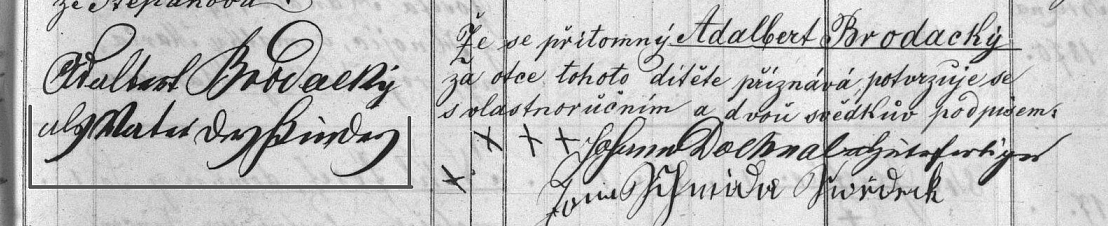 ze Štěpánova
Adalbert Brodacký
als Vater des Kindes
Že se přítomný Adalbert Brodacký
za otce tohoto dítěte přiznává, potvrzuje se
s vlastnoručním a dvou svědkův podpisem:
× × × Johann Doleżal
×